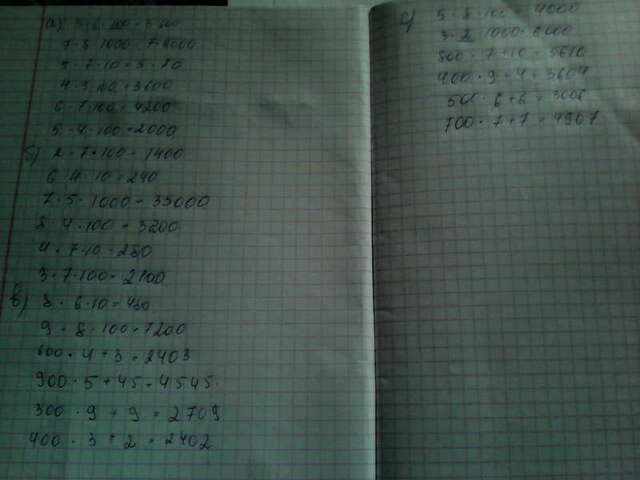 а) 3·6·100=3600
7·3·1000=72000
4·9·100=3600
6·7·100=4200
5·4·100=2000
б) 2·7·100=1400
6·4·10=240
7·5·1000=35000
8·4·100=3200
4·7·10=280
3·7·100=2100
в) 8·6·10=480
9·8·100=7200
600·4+3=2403
900·5+45=4545
300·9+9=2709
400·3+2=2402
5·8·100=4000
3·2·1000=6000
500·7+10=5610
400·9+4=3604
500·6+6=3006
700·7+7=4907